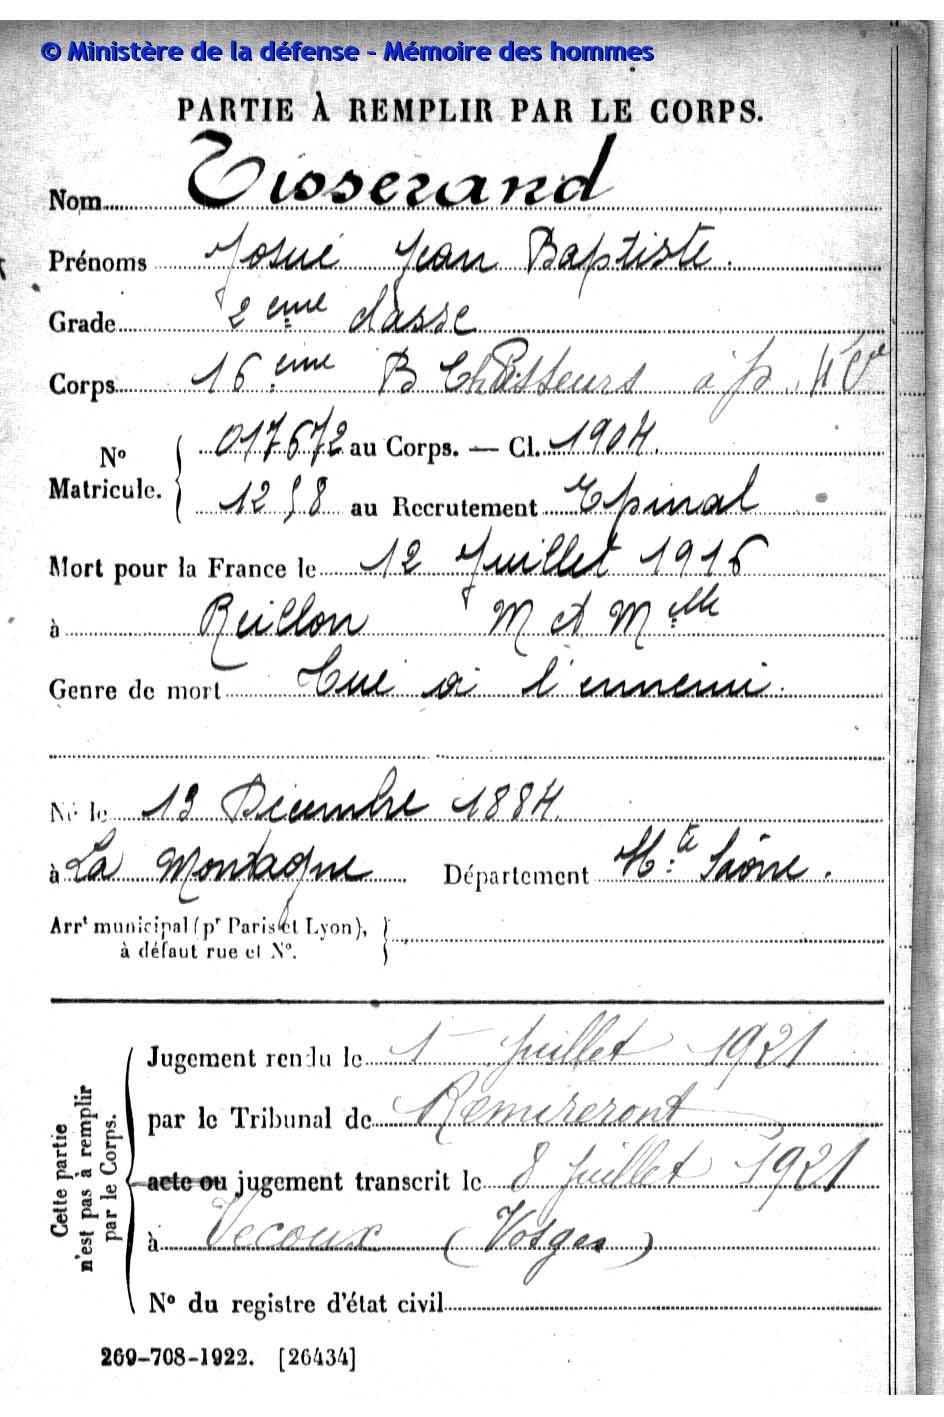 © Ministère de la défense - Mémoire des hommes
PARTIE À REMPLIR PAR LE CORPS.
Nom Tisserand
Prénoms Josué Jean Baptiste.
Grade 2eme classe
Corps 16eme B Chasseurs à p
No Matricule. 017672 au Corps. — Cl. 1904.
1258 au Recrutement Epinal
Mort pour la France le 12 Juillet 1916
à Reillon M et Melle
Genre de mort Tué à l'ennemi.
Né le 13 Décembre 1884.
à La Montagne Département Hte Saône.
Arrt municipal (pr Paris et Lyon),
à défaut rue et No.
Cette partie n'est pas à remplir par le Corps.
Jugement rendu le 1 Juillet 1921
par le Tribunal de Remiremont
acte ou jugement transcrit le 8 Juillet 1921
à Vecoux (Vosges)
No du registre d'état civil
269-708-1922. [26434]